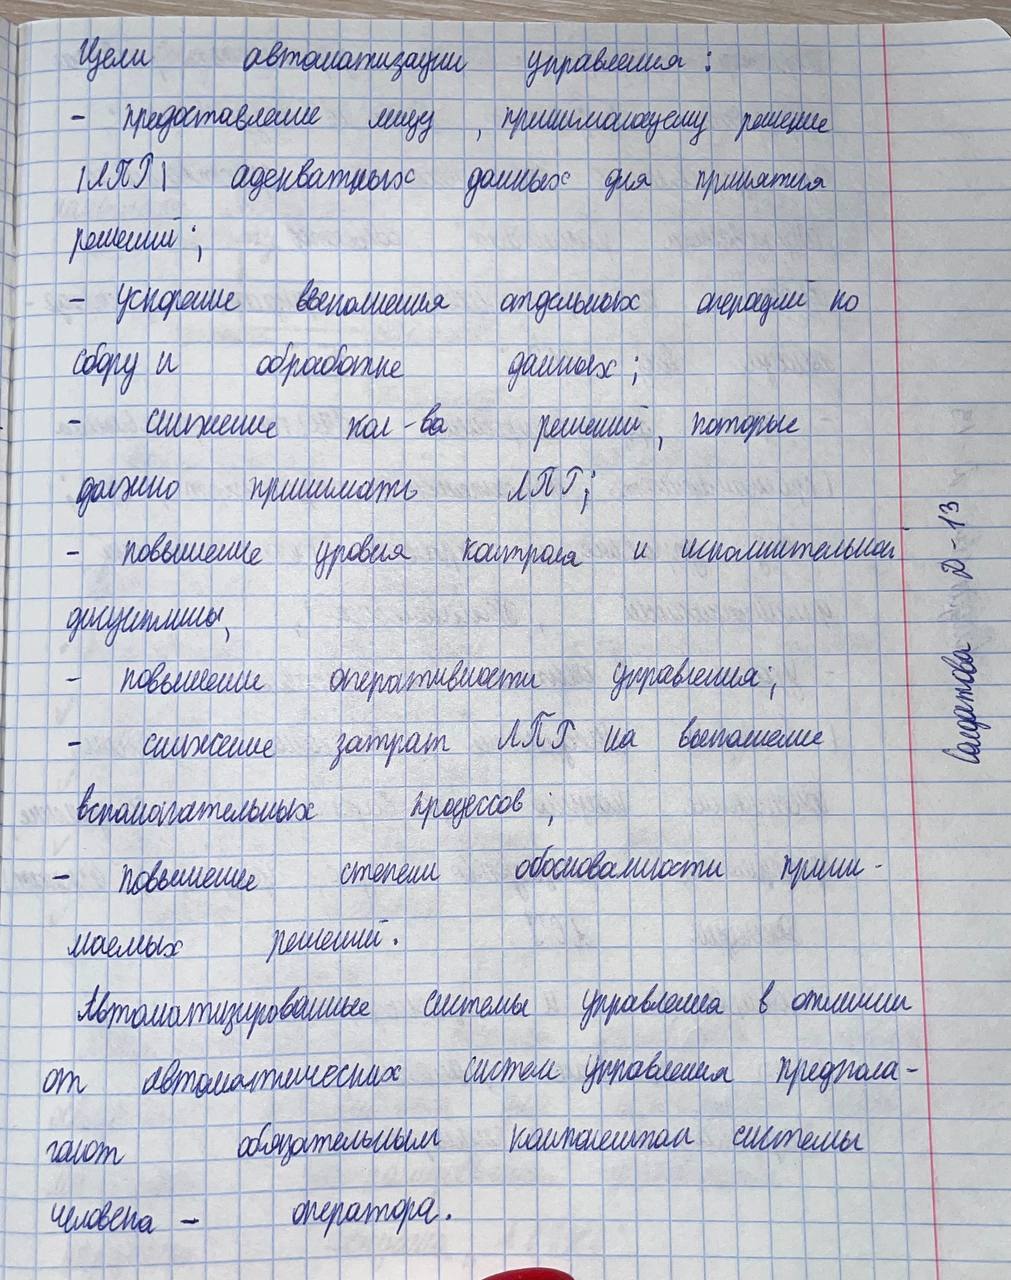 Цели автоматизации управления:
- предоставление лицу, принимающему решение
|ЛПР| адекватных данных для принятия
решений;
- ускорение выполнения отдельных операций по
сбору и обработке данных;
- снижение кол-ва решений, которые
должно принимать ЛПР;
- повышение уровня контроля и исполнительной
дисциплины,
- повышение оперативности управления;
- снижение затрат ЛПР на выполнение
вспомогательных процессов;
- повышение степени обоснованности прини-
маемых решений.
Автоматизированные системы управления в отличии
от автоматических систем управления предпола-
гают обязательным компонентом системы
человека - оператора.
Солдатова Д-13